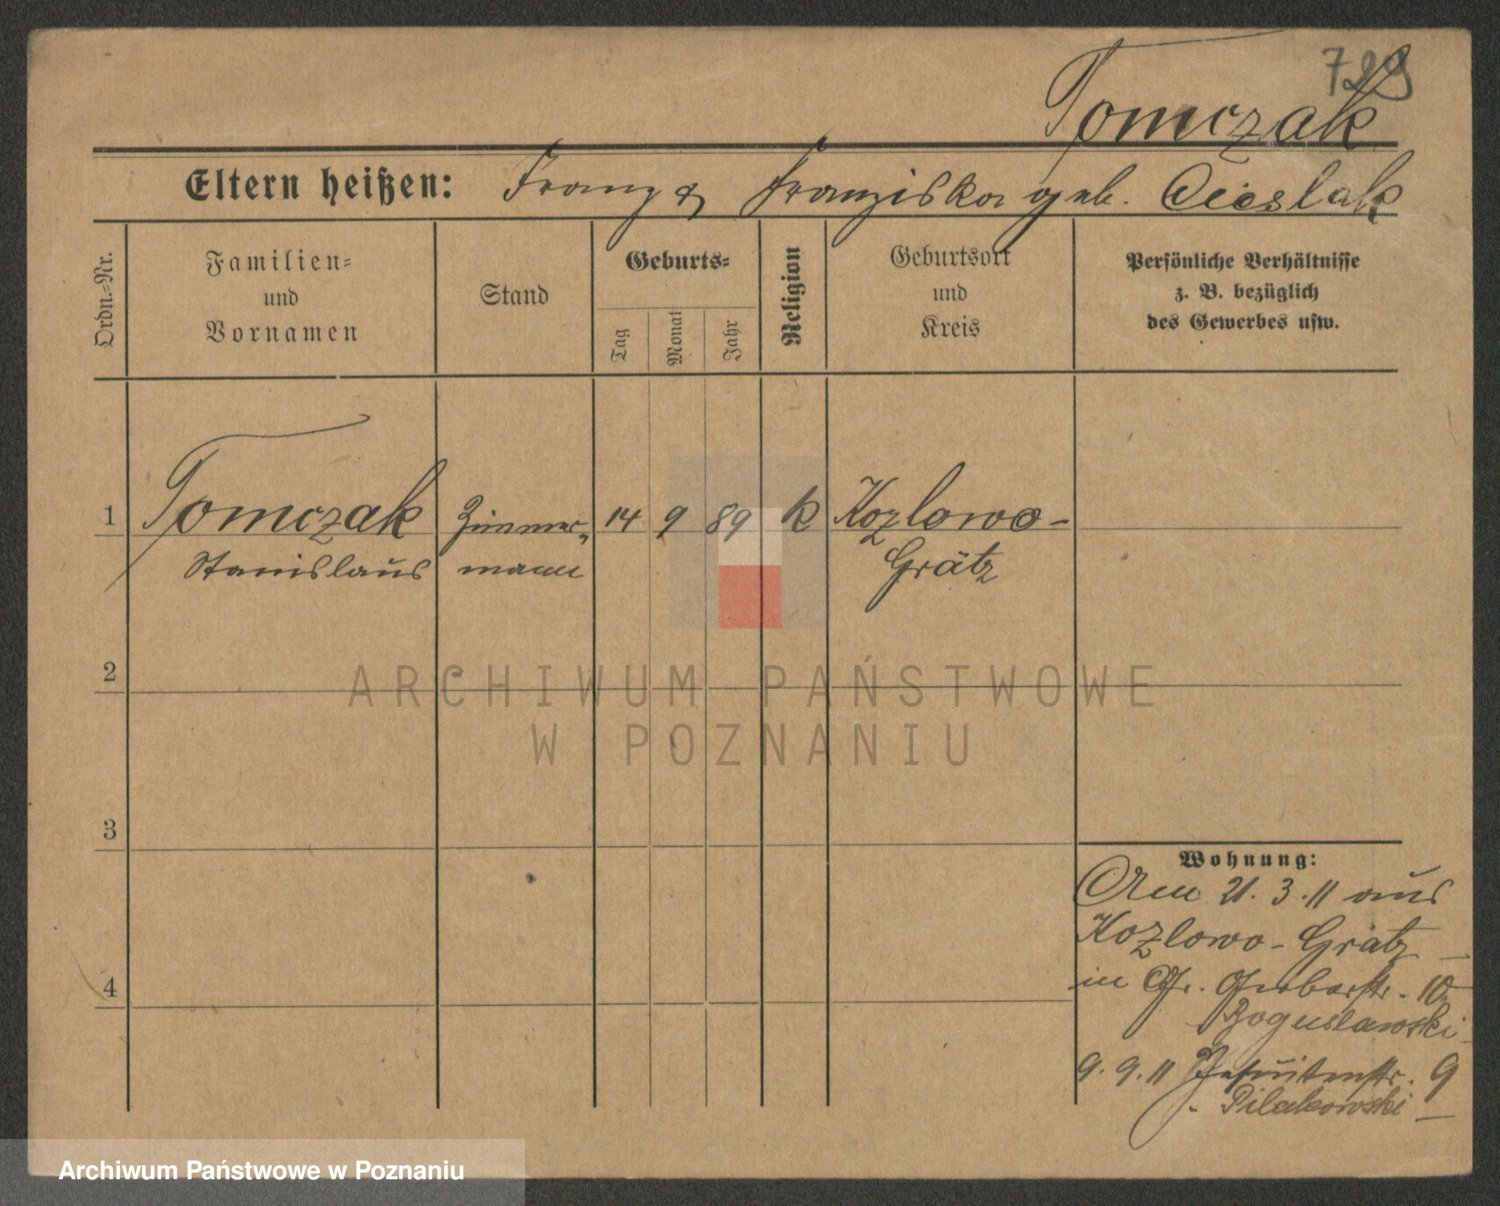 729
Tomczak
Eltern heißen: Franz & Franziska geb. Cieslak
Ordn.-Nr.
Familien-
und
Vornamen
Stand
Geburts-
Tag
Monat
Jahr
Religion
Geburtsort
und
Kreis
Persönliche Verhältnisse
z. B. bezüglich
des Gewerbes usw.
1 Tomczak Zimmer- 14 9 89 k Kozlowo-
Stanislaus mann Grätz
2
ARCHIWUM PAŃSTWOWE
W POZNANIU
3
Wohnung:
Am 21.3.11 aus
Kozlowo-Grätz
4
in Gr. Gerberstr. 10
Boguslawski
9.9.11 Jesuitenstr. 9
Pilakowski
Archiwum Państwowe w Poznaniu